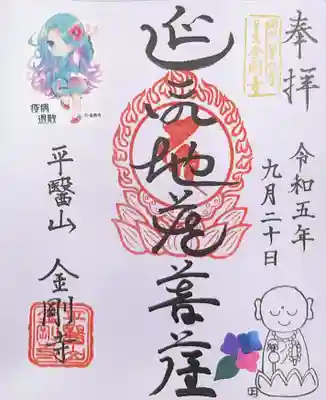 奉拝
令和五年
九月二十日
延命地蔵菩薩
平醫山
金剛寺
疫病
退散